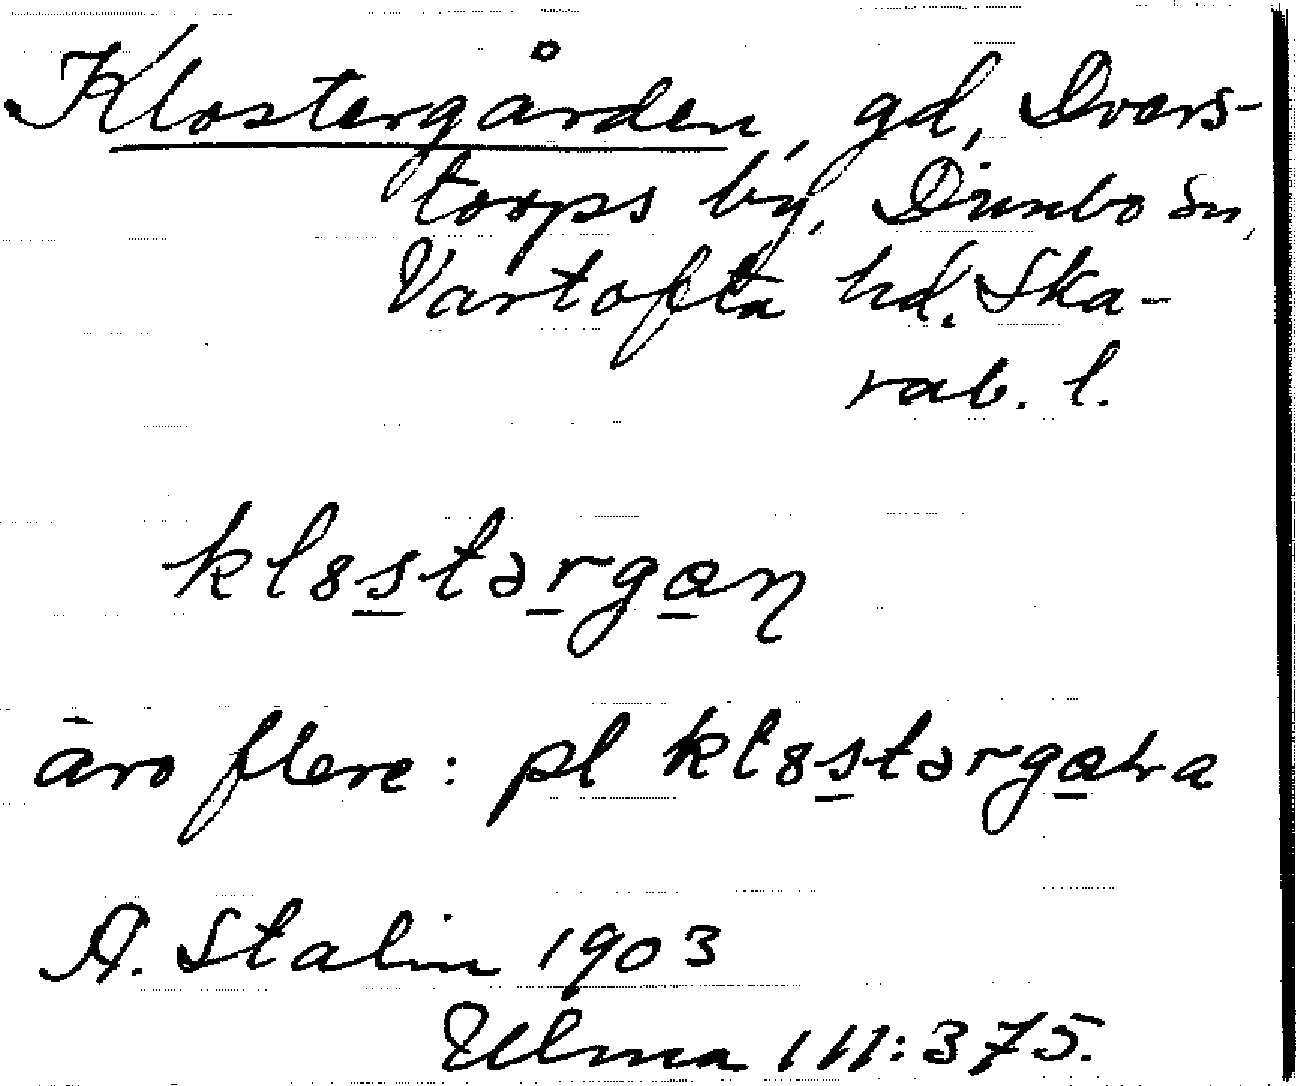 Klostergården, gd, Dvärs-
torps by, Dimbo sn,
Vartofta hd. Ska-
rab. l.
kl8stərgaɳ
äro flere: pl kl8stərgaɽa
A. Stalin 1903
Ulma 111:375.